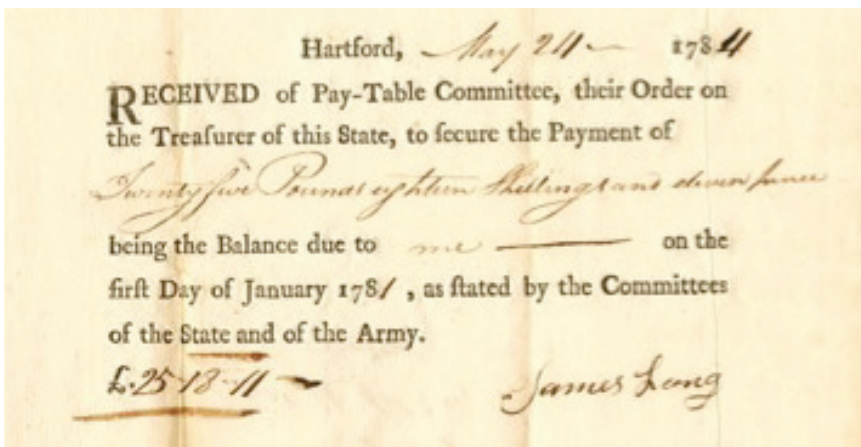 Hartford, May 24 1784
RECEIVED of Pay-Table Committee, their Order on
the Treaſurer of this State, to ſecure the Payment of
Twenty five Pounds eighteen Shillings and eleven pence
being the Balance due to me on the
firſt Day of January 1781, as ſtated by the Committees
of the State and of the Army.
£.25-18-11
James Long